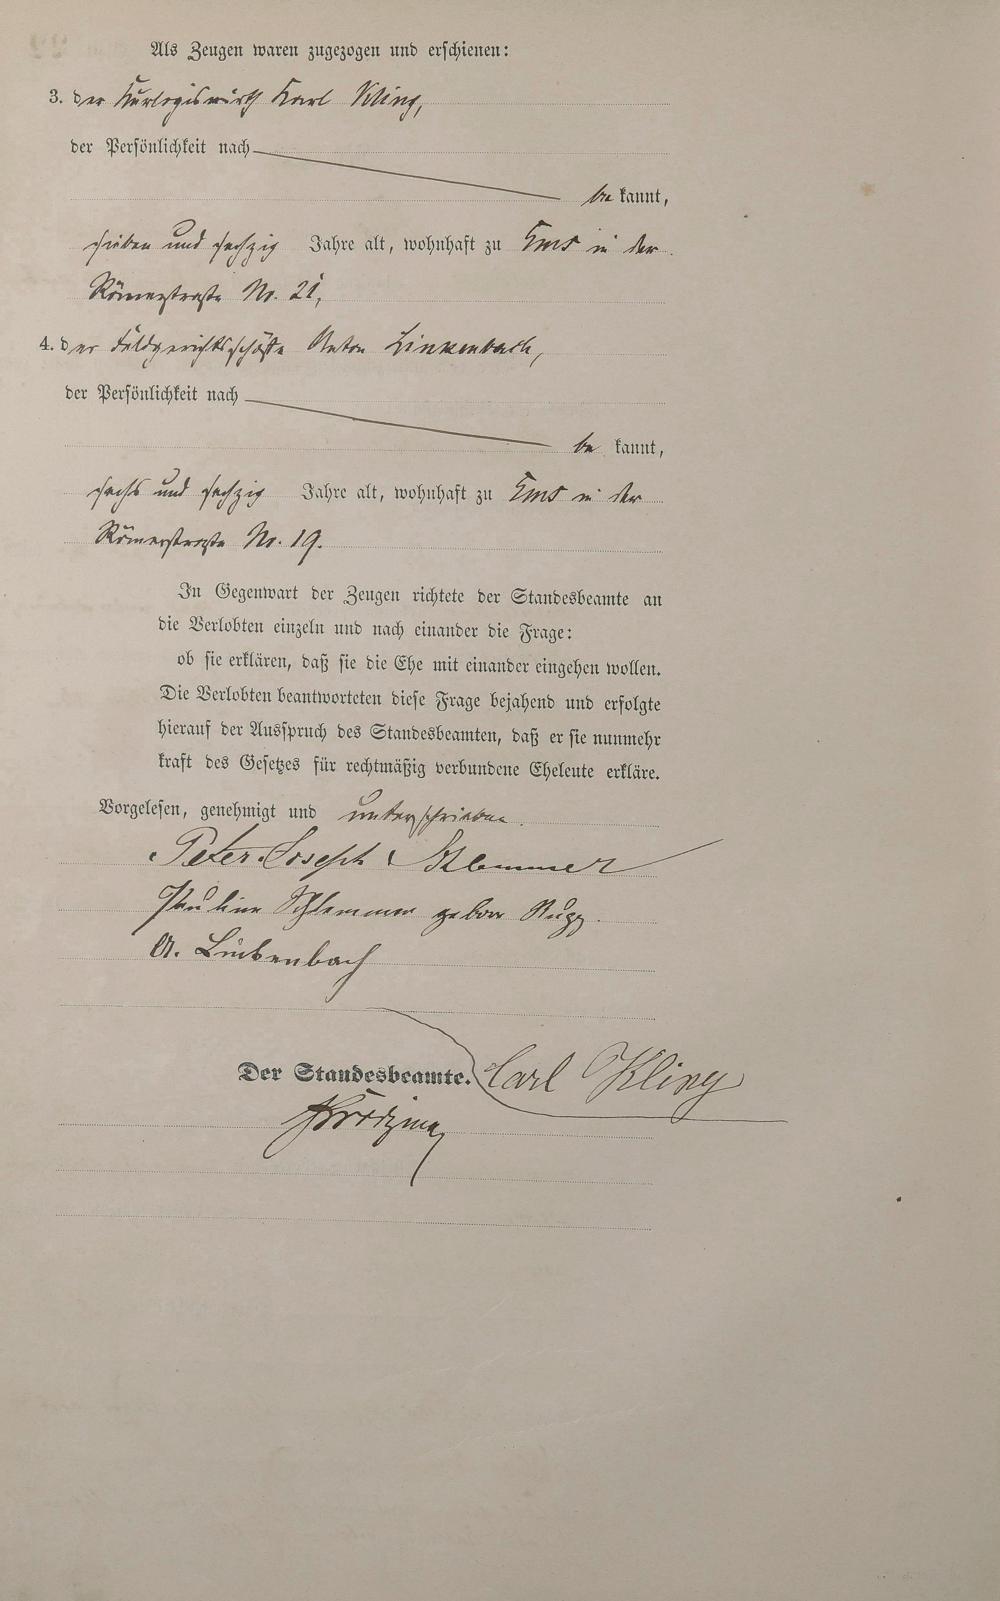 Als Zeugen waren zugezogen und erschienen:
3. der Kurlogiswirth Karl Kling,
der Persönlichkeit nach
be kannt,
sieben und sechzig Jahre alt, wohnhaft zu Ems in der
Römerstraße No. 21,
4. der Feldgerichtsschöffe Anton Linkenbach,
der Persönlichkeit nach
be kannt,
sechs und sechzig Jahre alt, wohnhaft zu Ems in der
Römerstraße No. 19.
In Gegenwart der Zeugen richtete der Standesbeamte an
die Verlobten einzeln und nach einander die Frage:
ob sie erklären, daß sie die Ehe mit einander eingehen wollen.
Die Verlobten beantworteten diese Frage bejahend und erfolgte
hierauf der Ausspruch des Standesbeamten, daß er sie nunmehr
kraft des Gesetzes für rechtmäßig verbundene Eheleute erkläre.
Vorgelesen, genehmigt und unterschrieben.
Peter Joseph Schlemmer
Pauline Schlemmer geborne Rupp.
A. Linkenbach
Carl Kling
Der Standesbeamte.